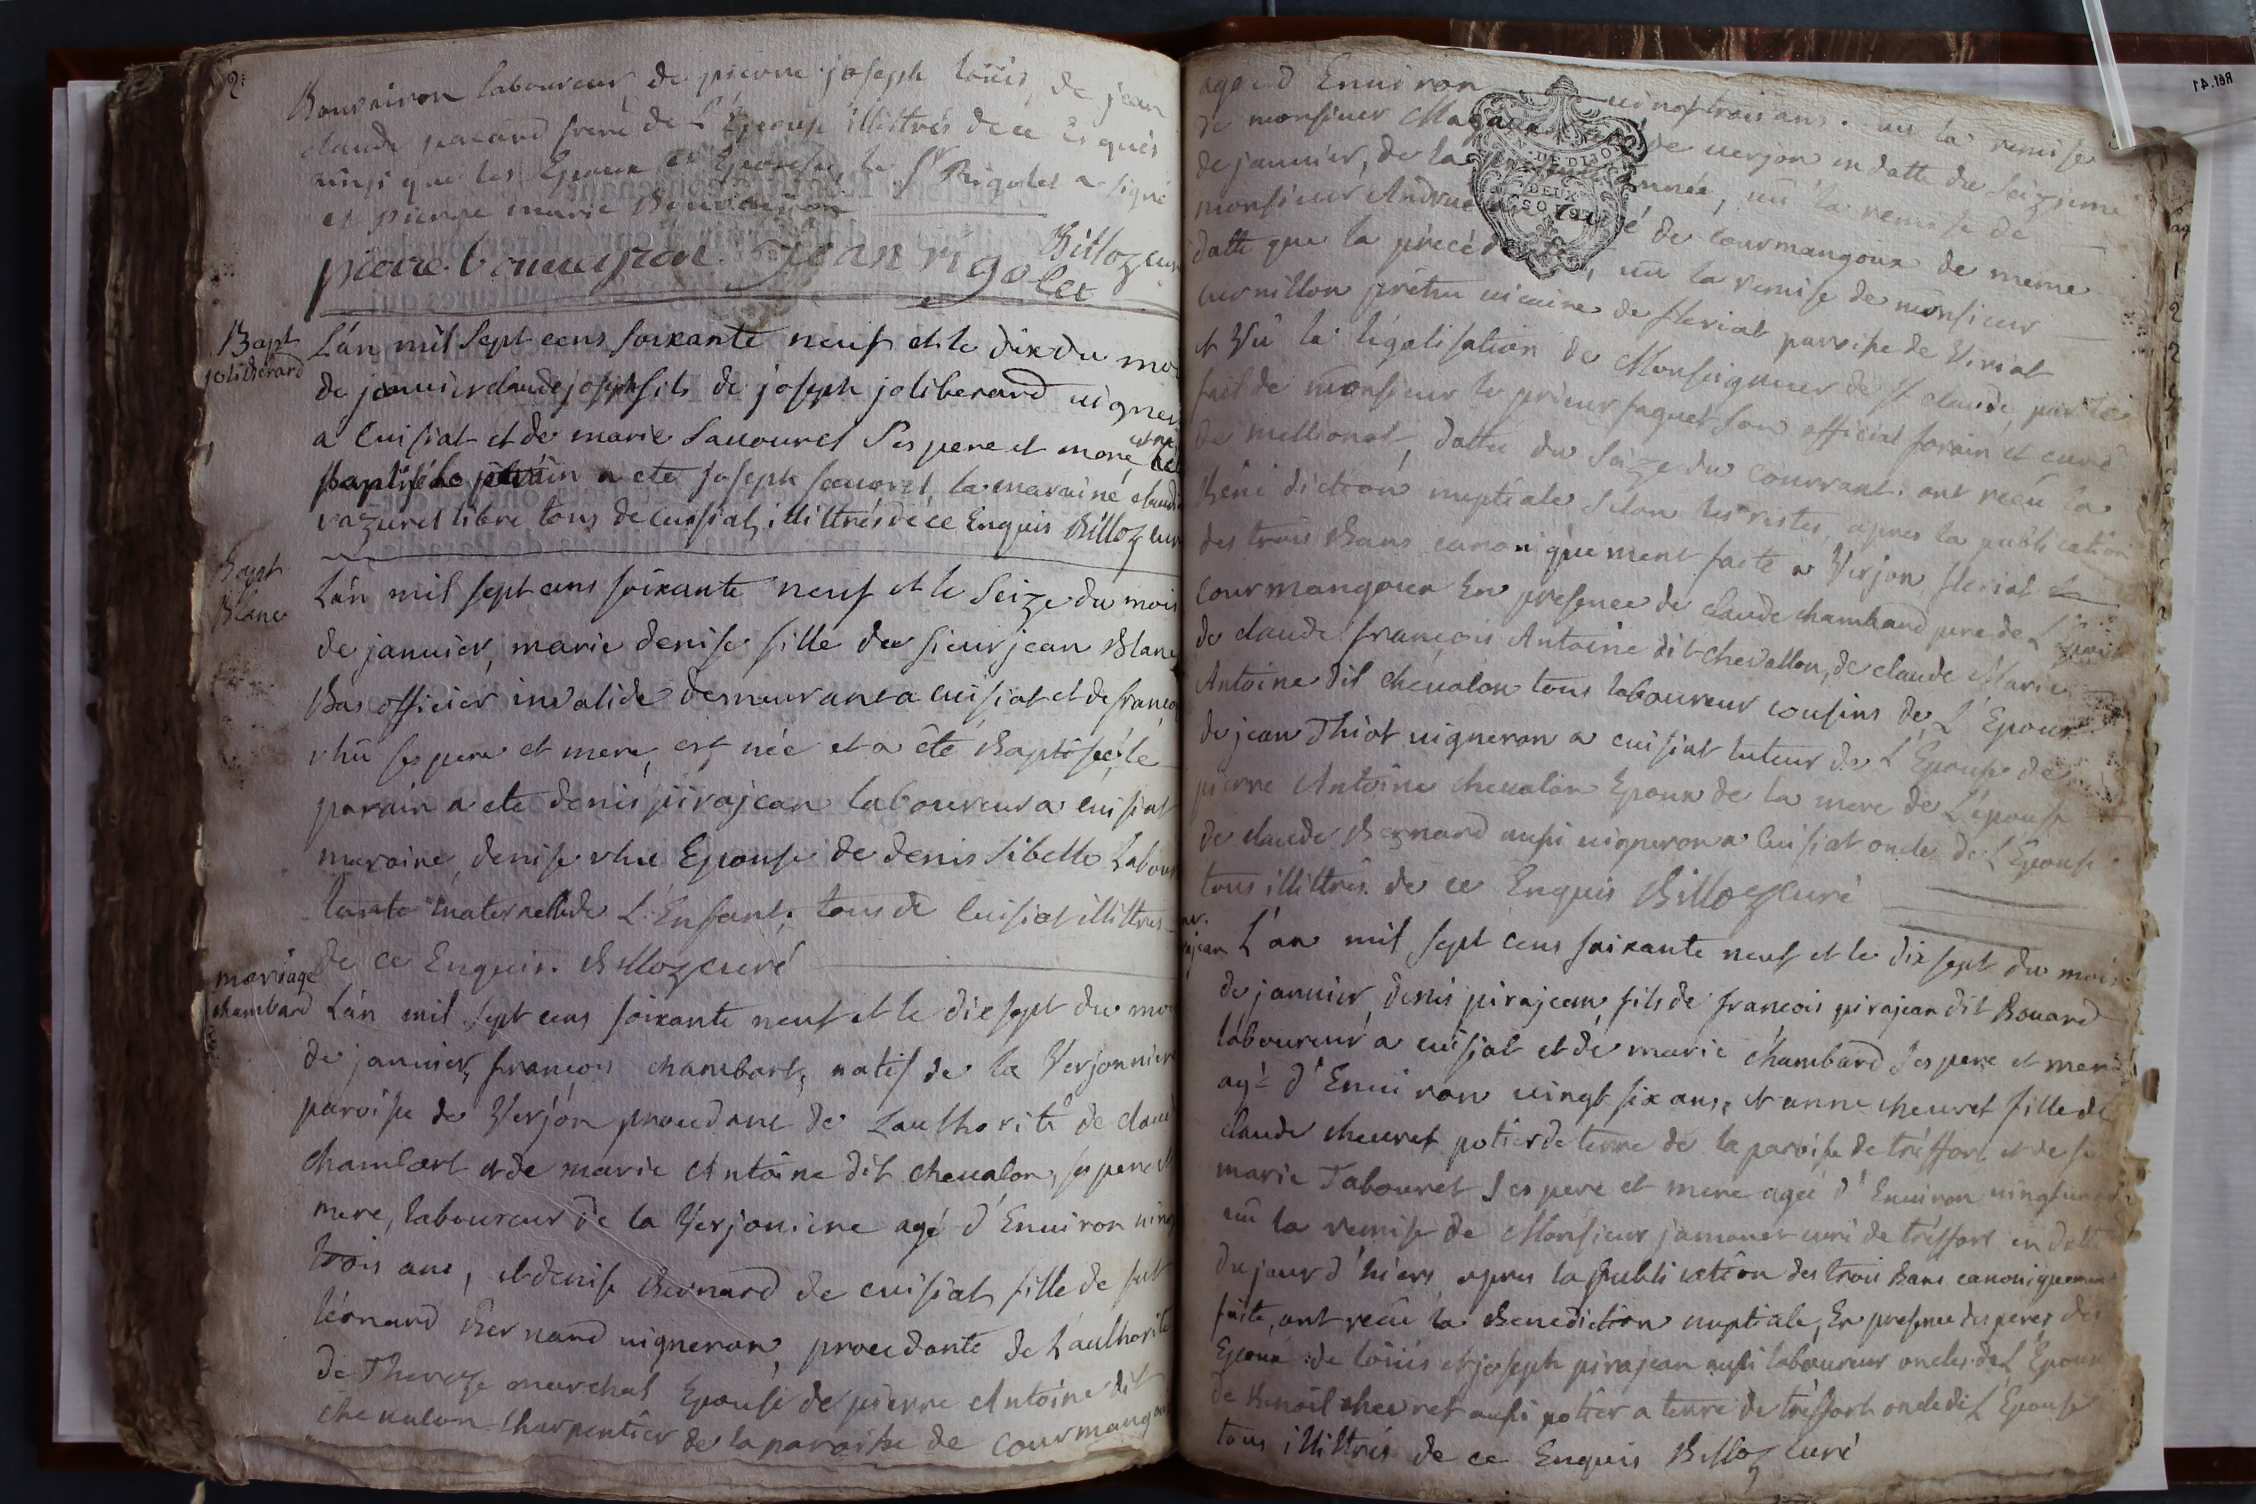 2
Bouvairon laboureur, de pierre joseph loüis, de jean
claude pacard frere de L'Epouse illittrés de ce Enquis
ainsi que les Epoux et Epouse, le Sr Rigolet a signé
et pierre marie Bouvairon
Billoz curé
pierre bouueyron jean rigolet
Bapt
joliberard
L'án mil sept cens soixante neuf et le dix du moi
de januier claude joseph fils de joseph joliberard uigner
a Cuisiat et de marie Sauouret Ses pere et mere, est né
Baptisé Le parain a eté joseph sauouret, la maraine claudi
vazuret libre tous de Cuisiat, illittrés de ce Enquis Billoz cur
Bapt
Blanc
L'án mil sept cens soixante neuf et le Seize du mois
de januier, marie denise fille du sieur jean Blanc
Bas officier invalide demeurant a cuisiat et de francoi
rhü ses pere et mere, est née et a êté Baptisée, le
parain a ete denis pirajean laboureur a cuisiat
maraine, denise rhu Epouse de denis Sibelle Labour
tante maternelle de L'Enfant, tous de Cuisiat illittres
de ce Enquis. Billoz curé
mariage
chambard
L'án mil sept cens soixante neuf et le dix sept du moi
de januier, françois chambart, natif de la Verjonniere
paroisse de Verjon procedant de Lauthorité de claud
chambart et de marie Antoine dit cheualon, ses pere et
mere, laboureur de la Verjoniere agé d'Enuiron uingt
trois ans, et denise Bernard de cuisiat, fille de fut
léonard Bernard uigneron, procedante de L'authorité
de Therese marchal Epouse de pierre Antoine dit
cheualon charpentier de la paroisse de Courmangou
ageé d'Enuiron uingt trois ans. uu la remise
de monsieur curé de uerjon en datte du seizieme
de januier, de la presente année, uü la remise de
monsieur curé de courmangoux de meme
datte que la précédente, uü la remise de monsieur
curuillon prêtre uicaire de fleriat paroisse de Viriat
et Vû la légalisation de Monseigneur de St claude, par le
fait de monsieur le prieur faguet son official forain et curé
de meillonat, dattée du Seize du courrant. ont reçu la
Béné diction nuptiale Selon les rites, apres la publication
des trois Bans canoniquement faite a Verjon, fleriat et
Courmangoux En presence de claude chambard pere de L'Epoux
de claude françois Antoine dit chevallon, de claude Marie
Antoine dit cheualon tous laboureur cousins de L'Epoux
de jean Thiot uigneron a cuisiat tuteur de L'Epouse de
pierre Antoine cheualon Epoux de la mere de L'épouse
de claude Bernard aussi uigneron a Cuisiat oncle de L'Epouse
tous illittrés de ce Enquis Billoz Curé
L'án mil sept cens soixante neuf et le dix sept du mois
de januier, denis pirajean, fils de francois pirajean dit Bouard
laboureur a cuisiat et de marie chambard Ses pere et mere
agé d'Enuiron uingt six ans, et anne cheuret fille de
claude cheuret potier de terre de la paroisse de tréffort et de fe
marie Tabouret Ses pere et mere ageé d'Enuiron uingt
uü la remise de Monsieur jamonet curé de tréffort en datte
du jour d'hiers, apres la publication des trois Bans canoniquement
faite, ont reçüe la Benediction nuptiale, En presence des peres des
Epoux de loüis et joseph pirajean aussi laboureur oncles de L'Epoux
de Benoit cheuret aussi potier a terre de tréffort oncle de L'Epouse
tous illittrés de ce Enquis Billoz Curé